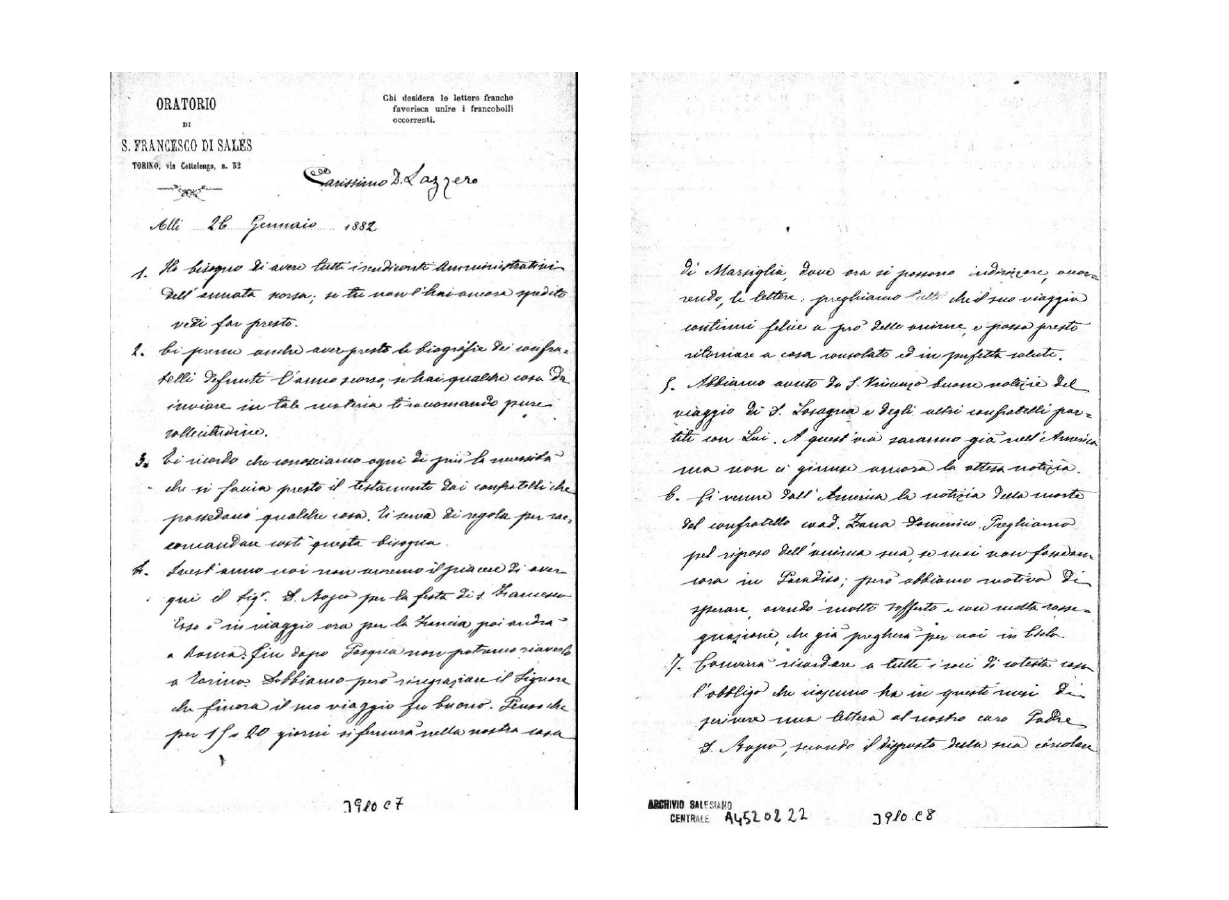 ORATORIO
DI
S. FRANCESCO DI SALES
TORINO, via Cottolengo, n. 32
Chi desidera le lettere franche
favorisca unire i francobolli
occorrenti.
Carissimo D. Lazzero
Alli 26 Gennaio 1882
1. Ho bisogno di avere tutti i rendiconti Amministrativi
dell'annata scorsa; se tu non l'hai ancora spedito
vedi far presto.
2. Ci preme anche aver presto le biografie dei confra-
telli defunti l'anno scorso, se hai qualche cosa da
inviare in tale materia ti raccomando pure
sollecitudine.
3. Ti ricordo che conosciamo ogni dì più la necessità
che si faccia presto il testamento dai confratelli che
possedano qualche cosa. Ti serva di regola per rac-
comandare costì questa bisogna.
4. Quest'anno noi non avremo il piacere di aver
qui il Sigr. D. Bosco per la festa di S. Francesco
Esso è in viaggio ora per la Francia poi andrà
a Roma. Fin dopo Pasqua non potremo riaverlo
a Torino. Dobbiamo però ringraziare il Signore
che finora il suo viaggio fu buono. Penso che
per 15 o 20 giorni si fermerà nella nostra casa
J980 C7
di Marsiglia, dove ora si possono indirizzare, occor-
rendo, le lettere: preghiamo tutti che il suo viaggio
continui felice a prò delle anime, e possa presto
ritornare a casa consolato ed in perfetta salute.
5. Abbiamo avuto da S. Vincenzo buone notizie del
viaggio di D. Lasagna e degli altri confratelli par-
titi con Lui. A quest'ora saranno già nell'America
ma non ci giunse ancora la attesa notizia.
6. Ci venne dall'America la notizia della morte
del confratello coad. Zana Domenico. Preghiamo
pel riposo dell'anima sua, se mai non fosse an-
cora in Paradiso; però abbiamo motivo di
sperare, avendo molto sofferto e con molta rasse-
gnazione, che già pregherà per noi in Cielo.
7. Converrà ricordare a tutti i soci di cotesta casa
l'obbligo che ciascuno ha in questi mesi di
scrivere una lettera al nostro caro Padre
D. Bosco, secondo il disposto della sua circolare
ARCHIVIO SALESIANO
CENTRALE A4520222
J980 C8